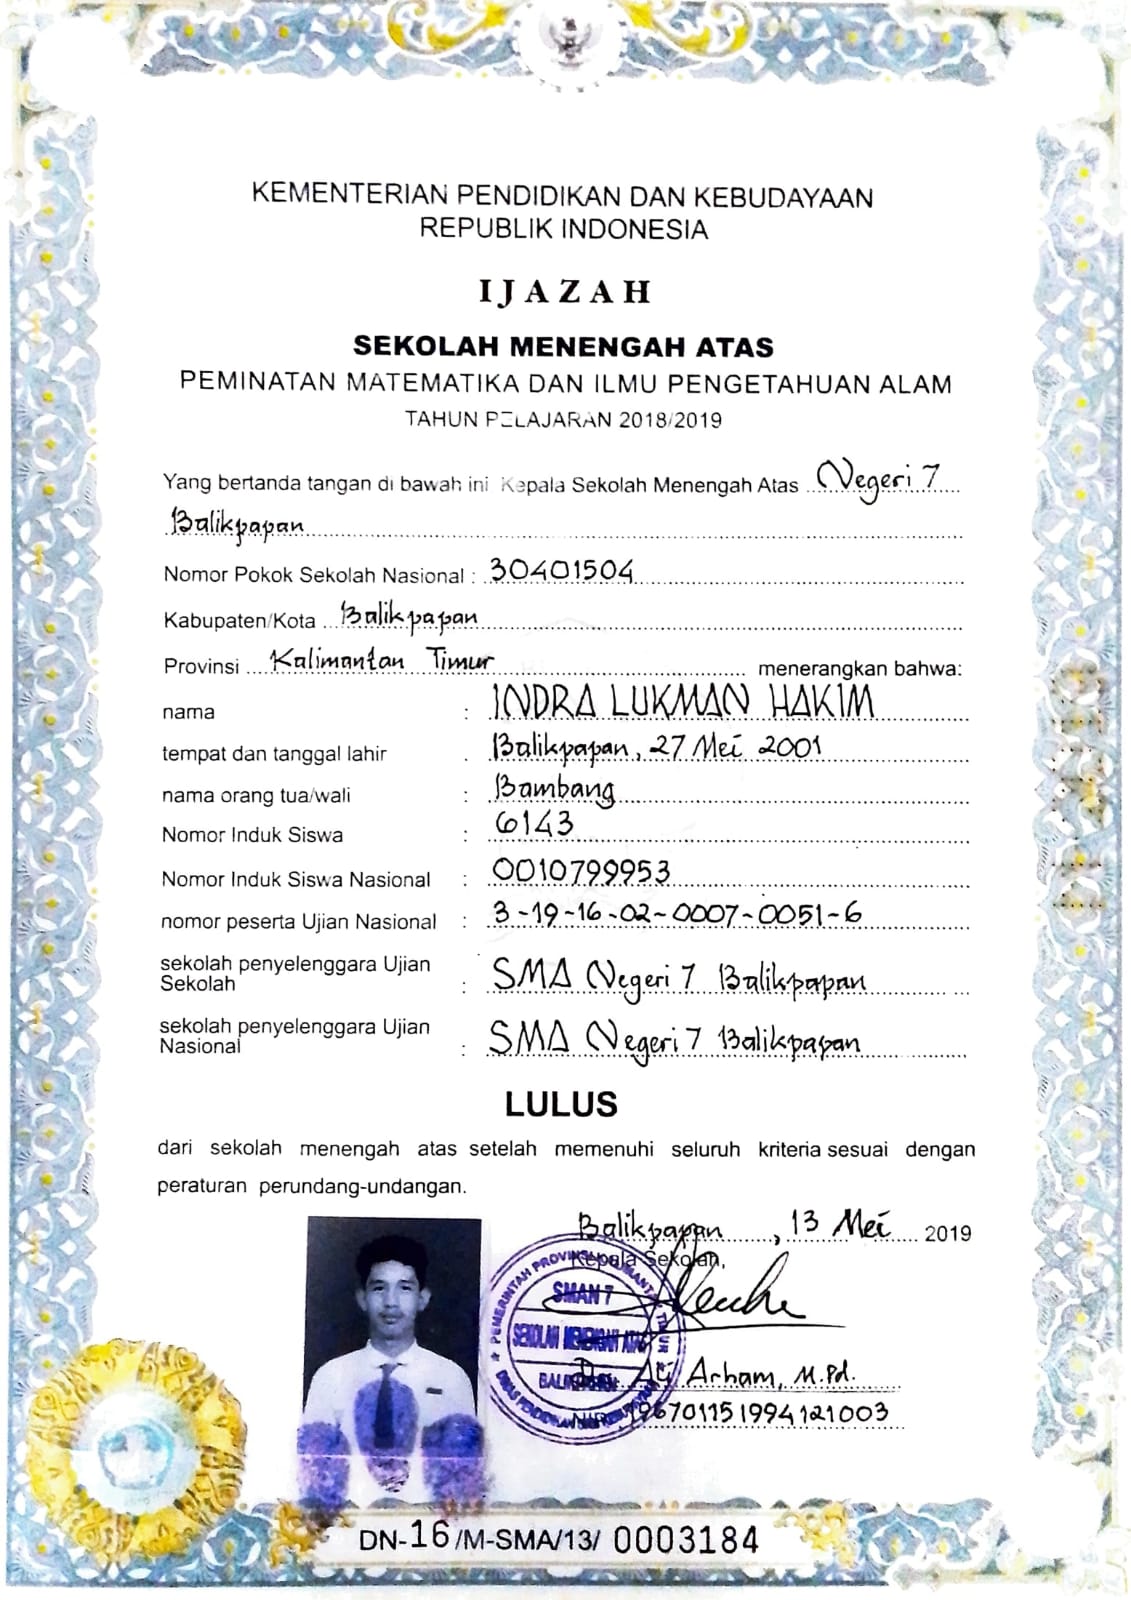 KEMENTERIAN PENDIDIKAN DAN KEBUDAYAAN
REPUBLIK INDONESIA
IJAZAH
SEKOLAH MENENGAH ATAS
PEMINATAN MATEMATIKA DAN ILMU PENGETAHUAN ALAM
TAHUN PELAJARAN 2018/2019
Yang bertanda tangan di bawah ini Kepala Sekolah Menengah Atas Negeri 7
Balikpapan
Nomor Pokok Sekolah Nasional : 30401504
Kabupaten/Kota Balikpapan
Provinsi Kalimantan Timur menerangkan bahwa:
nama : INDRA LUKMAN HAKIM
tempat dan tanggal lahir : Balikpapan, 27 Mei 2001
nama orang tua/wali : Bambang
Nomor Induk Siswa : 6143
Nomor Induk Siswa Nasional : 0010799953
nomor peserta Ujian Nasional : 3-19-16-02-0007-0051-6
sekolah penyelenggara Ujian
Sekolah : SMA Negeri 7 Balikpapan
sekolah penyelenggara Ujian
Nasional : SMA Negeri 7 Balikpapan
LULUS
dari sekolah menengah atas setelah memenuhi seluruh kriteria sesuai dengan
peraturan perundang-undangan.
Balikpapan, 13 Mei 2019
Kepala Sekolah,
PEMERINTAH PROVINSI KALIMANTAN TIMUR
SMAN 7
SEKOLAH MENENGAH ATAS
BALIKPAPAN
DINAS PENDIDIKAN DAN KEBUDAYAAN
Drs. Ali Arham, M.Pd.
NIP. 196701151994121003
DN-16/M-SMA/13/ 0003184